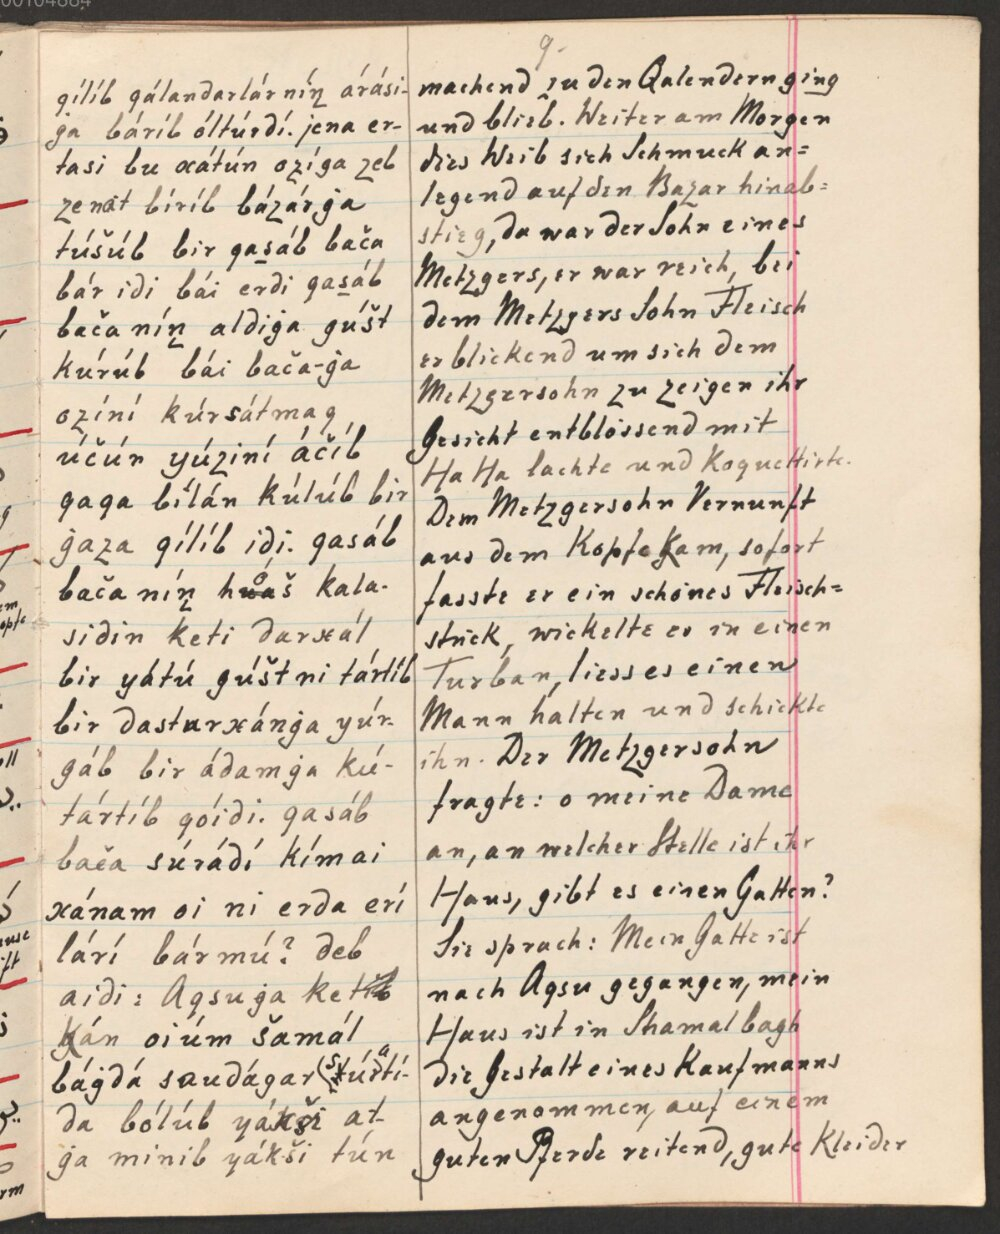 00104884
9.
qílíb qálandarlárníŋ árási-
ġa báríb óltúrdí. jena er-
tasi bu xátún ozíga zeb
zenat biríb bázárġa
túšúb bir qaṣáb bača
bár idi bái erdi qaṣáb
bačaníŋ aldiġa gúšt
kúrúb bái bača-ġa
ozíní kúrsátmaq
účún yúziní áčíb
qaqa bílán kúlúb bir
ġaza qílíb idi. qasáb
bačaníŋ hóš kala-
sidin keti darxál
bir yátú gúštni tártíb
bir dasturxánġa yúr-
gáb bir ádamġa kú-
tártíb qóidi. qasáb
bača súrádí kímai
xánam oi ni erda erí
lárí bármú? deb
aidi: Aqsuġa ket
kán oiúm šamál
báġdá saudágar súrtí-
da bólúb yákši at-
ġa minib yákši tún
machend zu den Qalendern ging
und blieb. Weiter am Morgen
dies Weib sich Schmuck an=
legend auf den Bazar hinab=
stieg, da war der Sohn eines
Metzgers, er war reich, bei
dem Metzgers Sohn Fleisch
erblickend um sich dem
Metzgersohn zu zeigen ihr
Gesicht entblössend mit
Ha Ha lachte und Koquettirte.
Dem Metzgersohn Vernunft
aus dem Kopfe kam, sofort
fasste er ein schönes Fleisch=
stück, wickelte es in einen
Turban, liess es einen
Mann halten und schickte
ihn. Der Metzgersohn
fragte: o meine Dame
an, an welcher Stelle ist ihr
Haus, gibt es einen Gatten?
Sie sprach: Mein Gatte ist
nach Aqsu gegangen, mein
Haus ist in Shamal bagh
die Gestalt eines Kaufmanns
angenommen, auf einem
guten Pferde reitend, gute Kleider